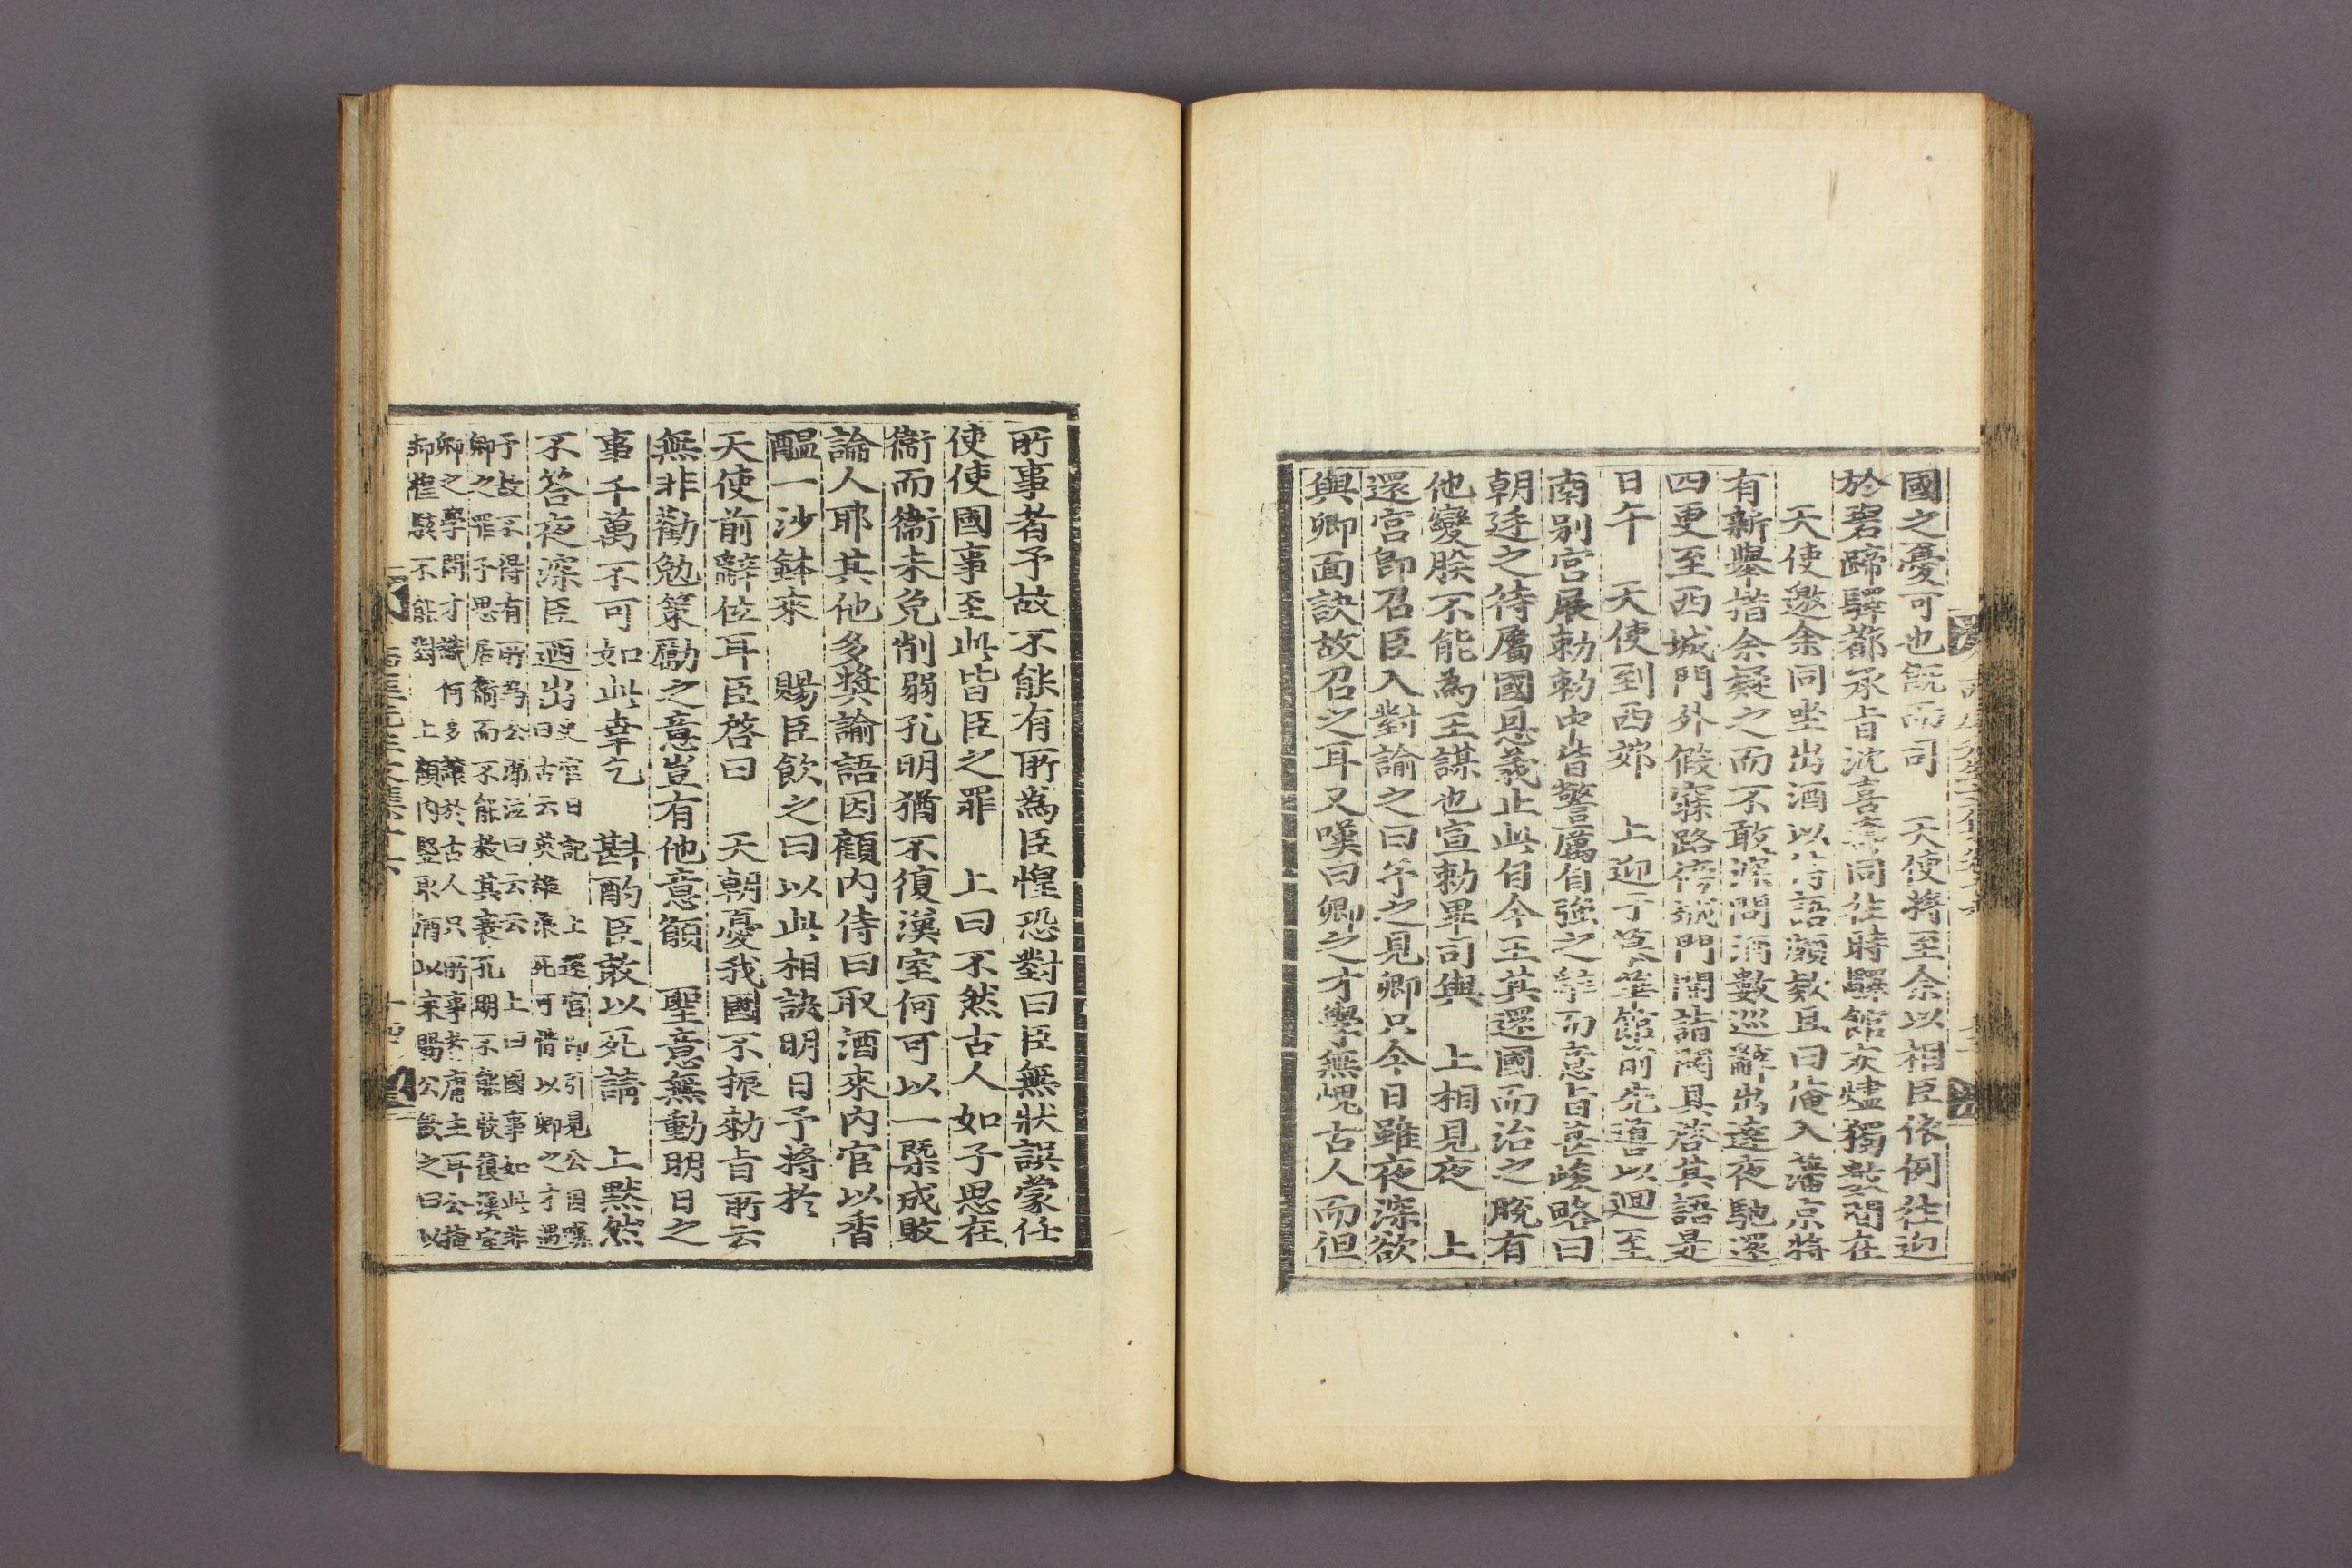 國之憂可也旣而司　天使將至余以相臣依例往迎
於碧蹄驛都承旨沈喜壽同往時驛館灰燼獨數間在
天使邀余同坐出酒以待語頗款且曰俺入藩京將
有新擧措余疑之而不敢深問酒數巡辭出達夜馳還
四更至西城門外假寐路傍城門開詣闕具啓其語是
日午　天使到西郊　上迎于慕華館前先導以廻至
南別宮展勅勅中皆警厲自強之辭而意旨甚峻略曰
朝廷之待屬國恩義止此自今王其還國而治之脫有
他變朕不能爲王謀也宣勅畢司與　上相見夜　上
還宮卽召臣入對諭之曰予之見卿只今日雖夜深欲
與卿面訣故召之耳又嘆曰卿之才學無愧古人而但
所事者予故不能有所爲臣惶恐對曰臣無狀誤蒙任
使使國事至此皆臣之罪　上曰不然古人如子思在
衞而衞未免削弱孔明猶不復漢室何可以一槩成敗
論人耶其他多奬諭語因顧內侍曰取酒來內官以香
醞一沙鉢來　賜臣飮之曰以此相訣明日予將於
天使前辭位耳臣啓曰　天朝憂我國不振勅旨所云
無非勸勉策勵之意豈有他意願　聖意無動明日之
事千萬不可如此幸乞　斟酌臣敢以死請　上默然
不答夜深臣廼出
史官日記　上還宮卽引見公因嘆
曰古云英雄浪死可惜以卿之才遇
予故不得有所爲公涕泣曰云云　上曰國事如此非
卿之罪子思居衞而不能救其衰孔明不能恢復漢室
卿之學問才識何多讓於古人只所事者庸主耳公掩
抑惶駭不能對　上顧內竪取酒以來賜公飮之曰以